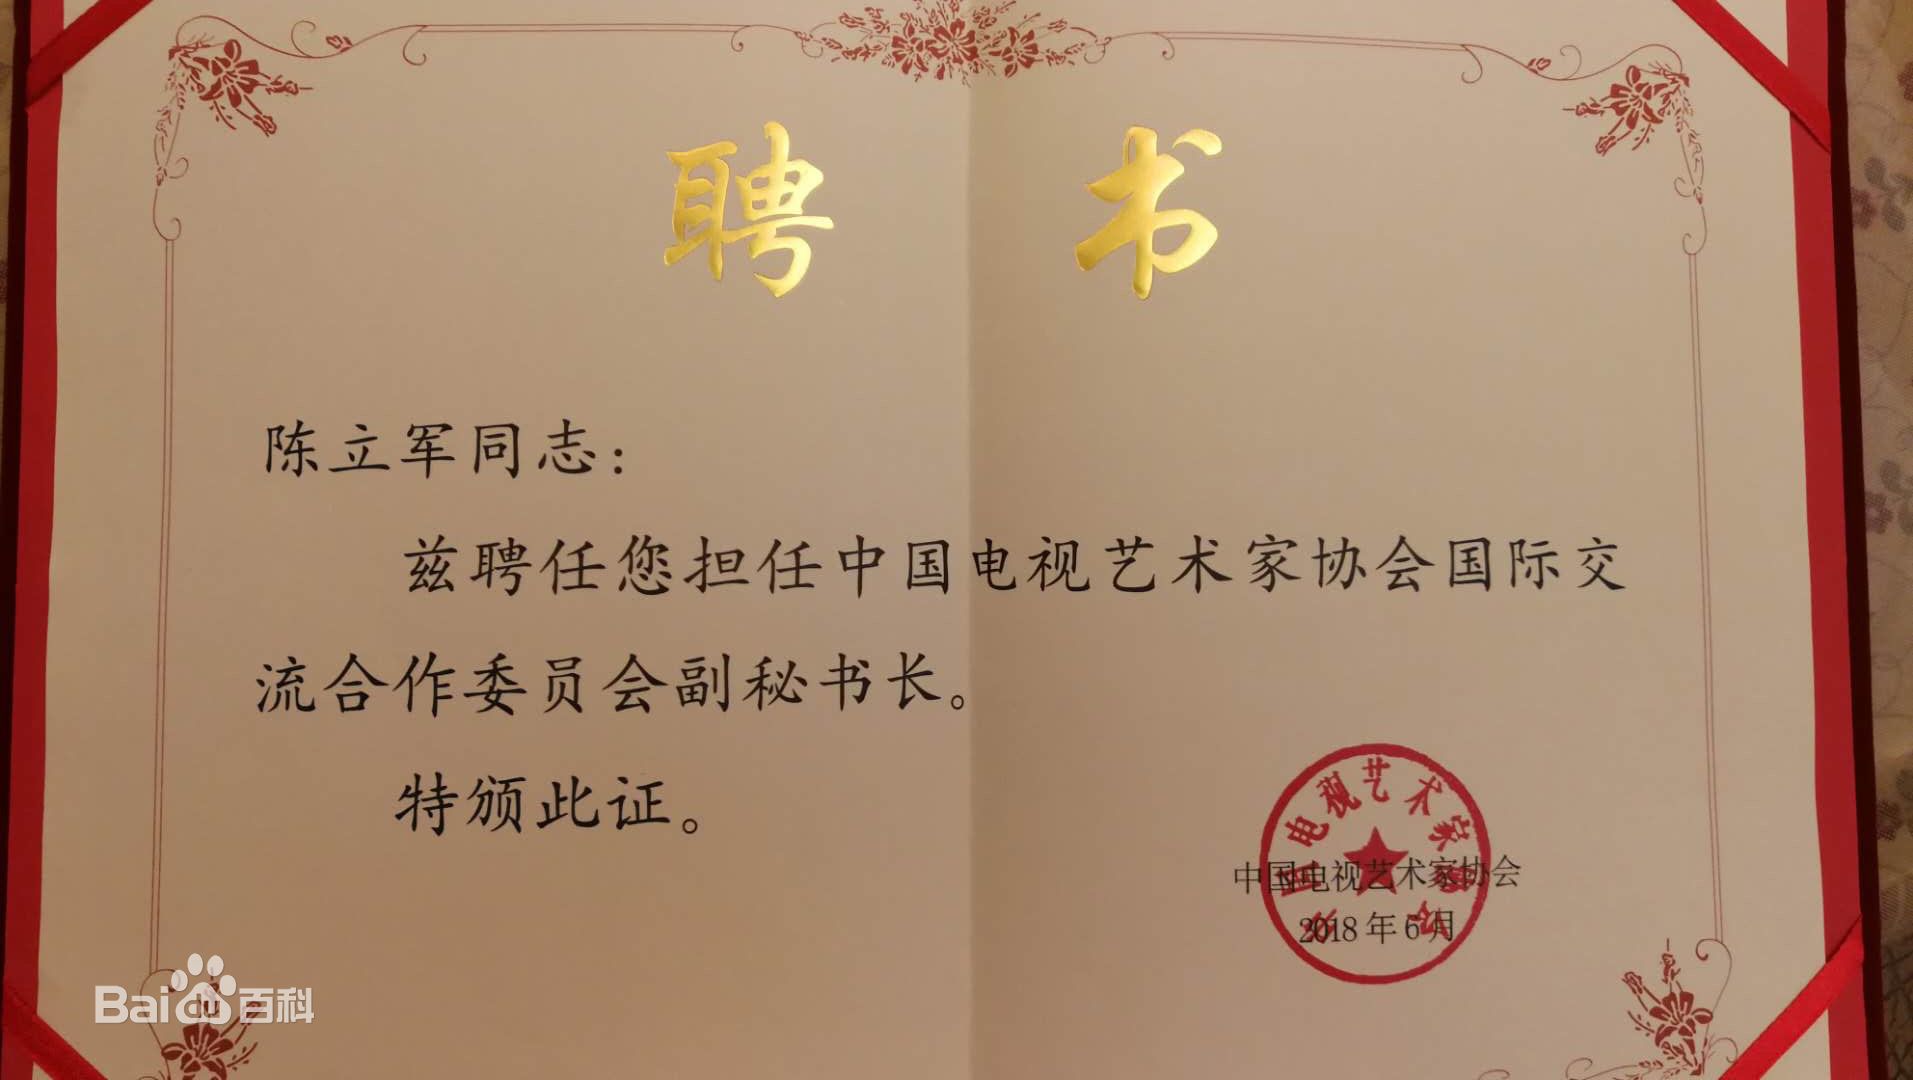 聘书
陈立军同志：
兹聘任您担任中国电视艺术家协会国际交
流合作委员会副秘书长。
特颁此证。
中国电视艺术家协会
中国电视艺术家协会
2018年6月
Baidu百科